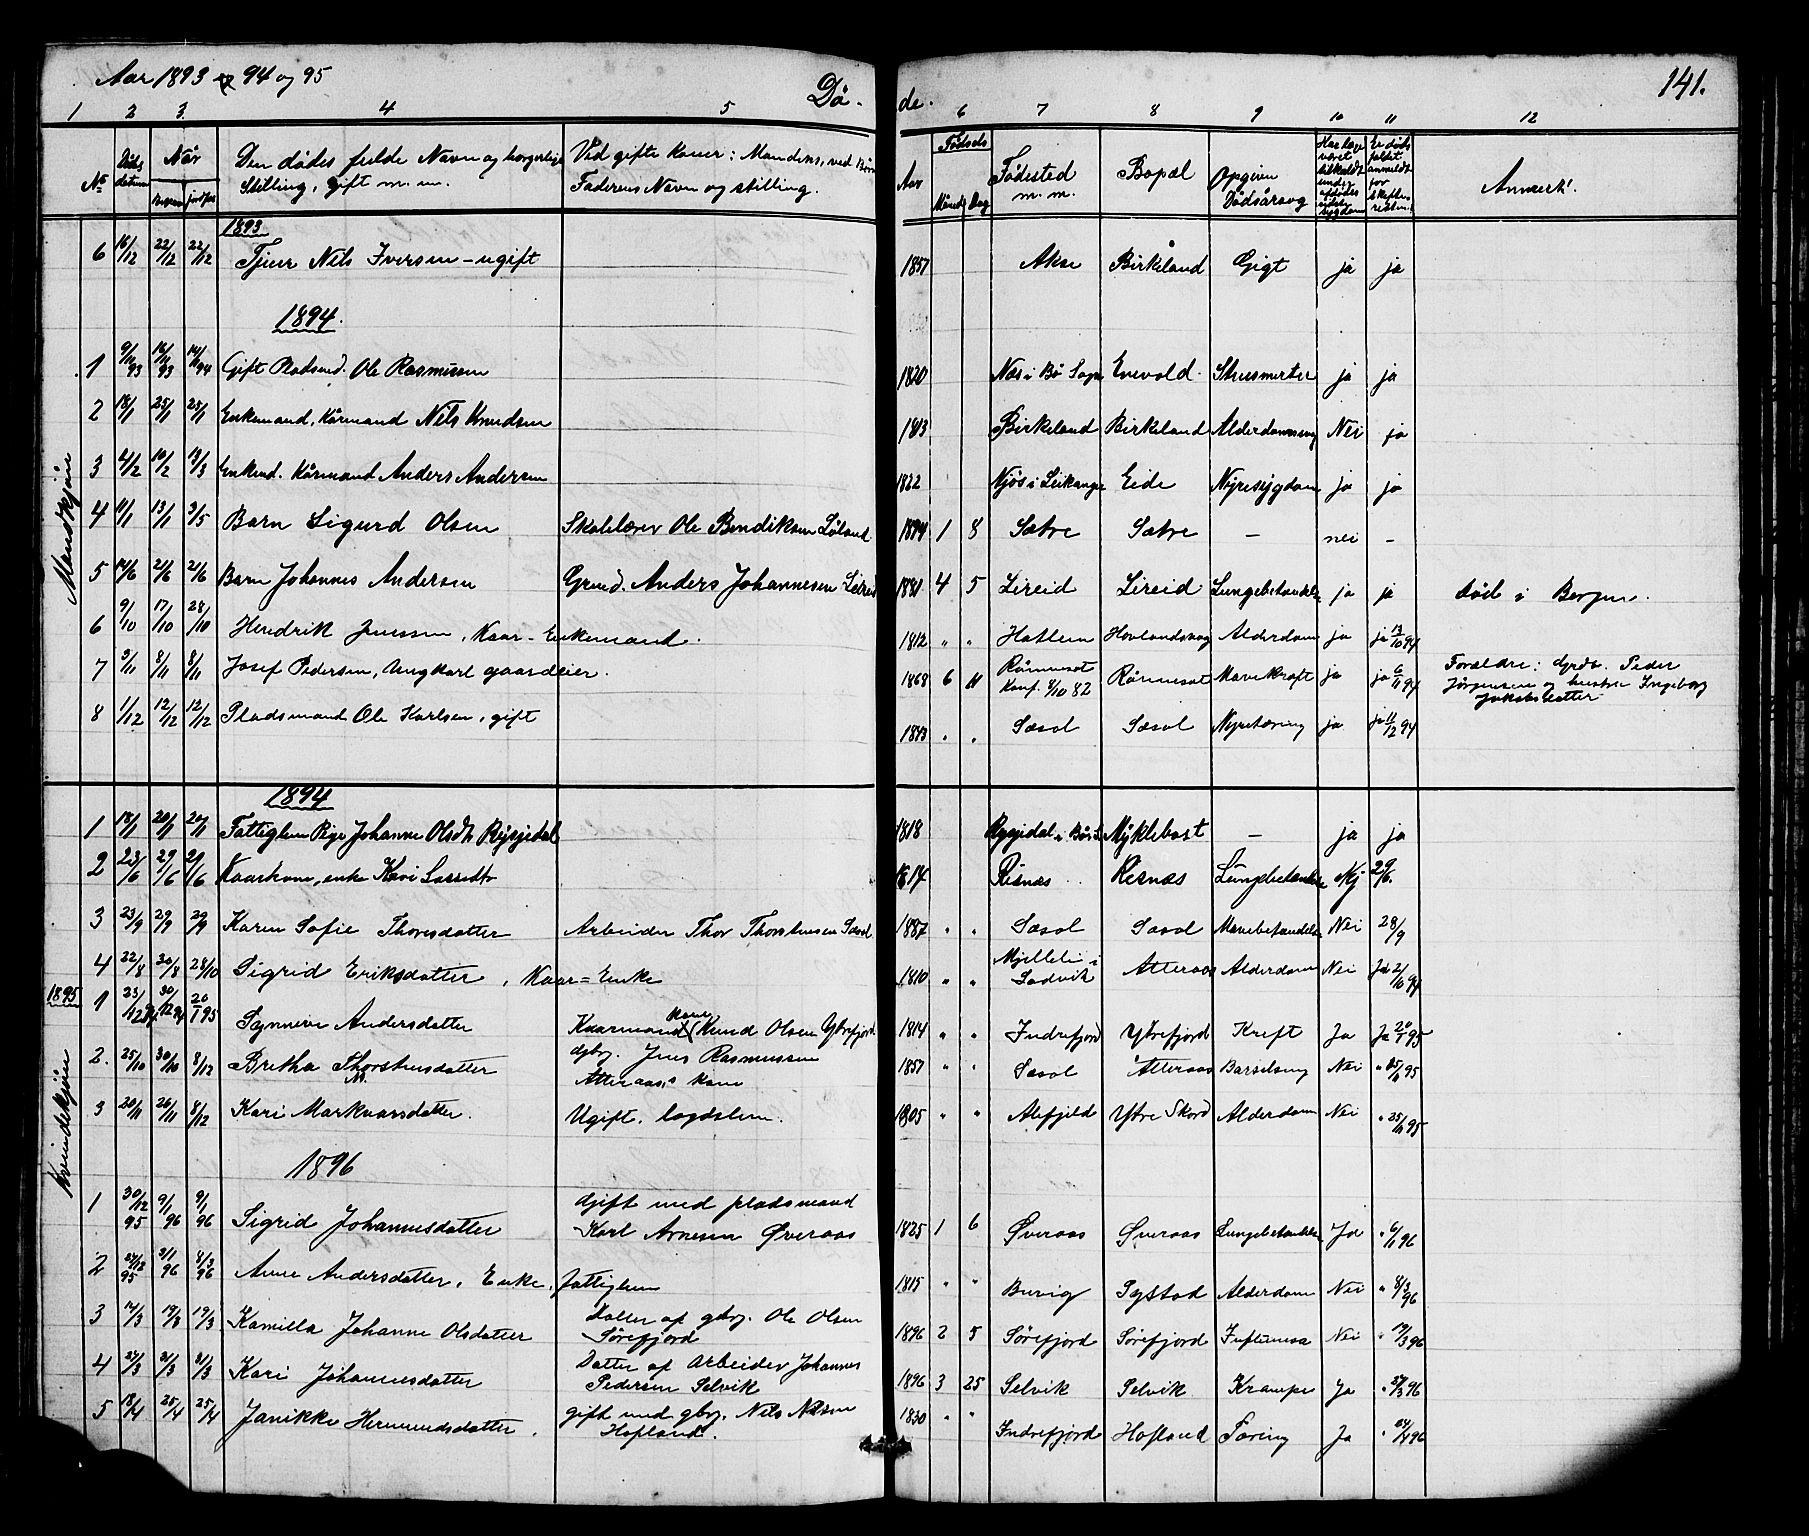 Aar 1893 & 94 og 95 Dø- de. 141.
1 2 3. 4 5 6 7 8 9 10 11 12
№ Døds datum Naar Den dødes fulde Navn og borgerlige Ved gifte Koner: Mandens, ved Børn Aar Fødsels Fødested Bopæl Opgiven Anmerk.
Stilling, gift m. m. Faderens Navn og stilling. Maaned Dag m. m. Dødsårsag
1893
6 16/12 22/12 22/12 Tjener Nils Iversen - ugift 1857 Akse Birkeland Gigt ja ja
1894.
Mandskjøn
1 9/11 93 16/11 93 94 Gift Pladsmd. Ole Rasmussen 1820 Næs i Bø Sogn Evevold Struesmerter ja ja
2 18/1 25/1 25/1 Enkemand, Kårmand Nils Knudsen 1813 Birkeland Birkeland Alderdomssvag Nei ja
3 4/2 10/2 13/3 Enkemd. Kårmand Anders Andersen 1822 Njøs i Leikanger Eide Nyresygdom ja ja
4 11/1 13/1 3/5 Barn Sigurd Olsen Skolelærer Ole Bendiksen Løland 1894 1 8 Sætre Sætre - nei -
5 14/6 21/6 21/6 Barn Johannes Andersen Grmd. Anders Johannesen Lireid 1881 4 5 Lireid Lireid Lungebetændelse ja ja død i Bergen.
6 9/10 17/10 28/10 Hendrik Jenssen, Kaar-Enkemand. 1812 " " Hatlem Hovlandsvaag Alderdom ja ja 13/10 94
7 3/11 8/11 8/11 Josef Pedersen, Ungkarl gaardeier. 1868 6 11 Rønneset Konf. 8/10 82 Rønneset Mavekræft ja ja 6/11 94 Forældre: Grdb. Peder
Jørgensen og hustru Ingeborg
Jakobsdatter
8 1/12 12/12 12/12 Pladsmand Ole Karlsen, gift 1843 " " Sæsol Sæsol Nyretæring ja ja 11/12 94
1894
1 18/1 20/1 20/1 Fattiglem Pige Johanne Olsdt. Rysjedal 1818 Rysjedal i Bø S. Myklebost - ja ja
2 23/6 29/6 29/6 Kaarkone, enke Kari Larsdtr 1814 Risnæs Risnæs Lungebetændelse Nej 29/6.
3 23/9 29/9 29/9 Karen Sofie Thoresdatter Arbeider Thor Thorstensen Sæsol 1887 " " Sæsol Sæsol Mavebetændelse Nei 28/9
4 22/8 30/8 28/10 Sigrid Eriksdatter, Kaar-Enke 1810 " " Mjellelie i Ladvik Atteraas Alderdom Nei Ja 2/10 94
1895
Kvindekjøn
1 23/12 94 30/12 94 20/1 95 Synneve Andersdatter Kaarmand Knud Olsen Kone Ytrefjord 1814 " " Indrefjord Ytrefjord Kreft Ja Ja 20/1 95
2. 25/10 30/10 8/12 Bretha M. Thorstensdatter gbrg. Jens Rasmussen 1857 " " Sæsol Atteraas Barselseng Nei " 25/11 95
Atteraas's kone
3 20/11 26/11 8/12 Kari Markvarsdatter. Ugift, lægdslem. 1805 " " Alefjeld Ytre Skord Alderdom Nei " 25/11 95
1896
1 30/12 95 9/1 96 9/1 96 Sigrid Johannesdatter Gjift med pladsmand 1825 1 6 Øveraas Øveraas Lungebetændelse Ja " 6/1 96
Karl Arnesen Øveraas
2 27/12 95 3/1 96 8/3 96 Anne Andersdatter, Enke, fattiglem 1815 " " Buvig Systad Alderdom Nei " 8/3 96
3 14/3 19/3 19/3 Kamilla Johanne Olsdatter Datter af gbrg. Ole Olsen 1896 2 5 Sørefjord Sørefjord Influensa Nei " 19/3 96
Sørefjord
4 27/3 31/3 31/3 Kari Johannesdatter Datter af Arbeider Johannes 1896 3 25 Selvik Selvik Krampe Ja " 27/3 96
Pedersen Selvik
5 18/4 25/4 25/4 Janikke Hermundsdatter. gift med gbrg. Nils Nilsen 1830 " " Indrefjord Hofland Tæring Ja " 24/4 96
Hofland.